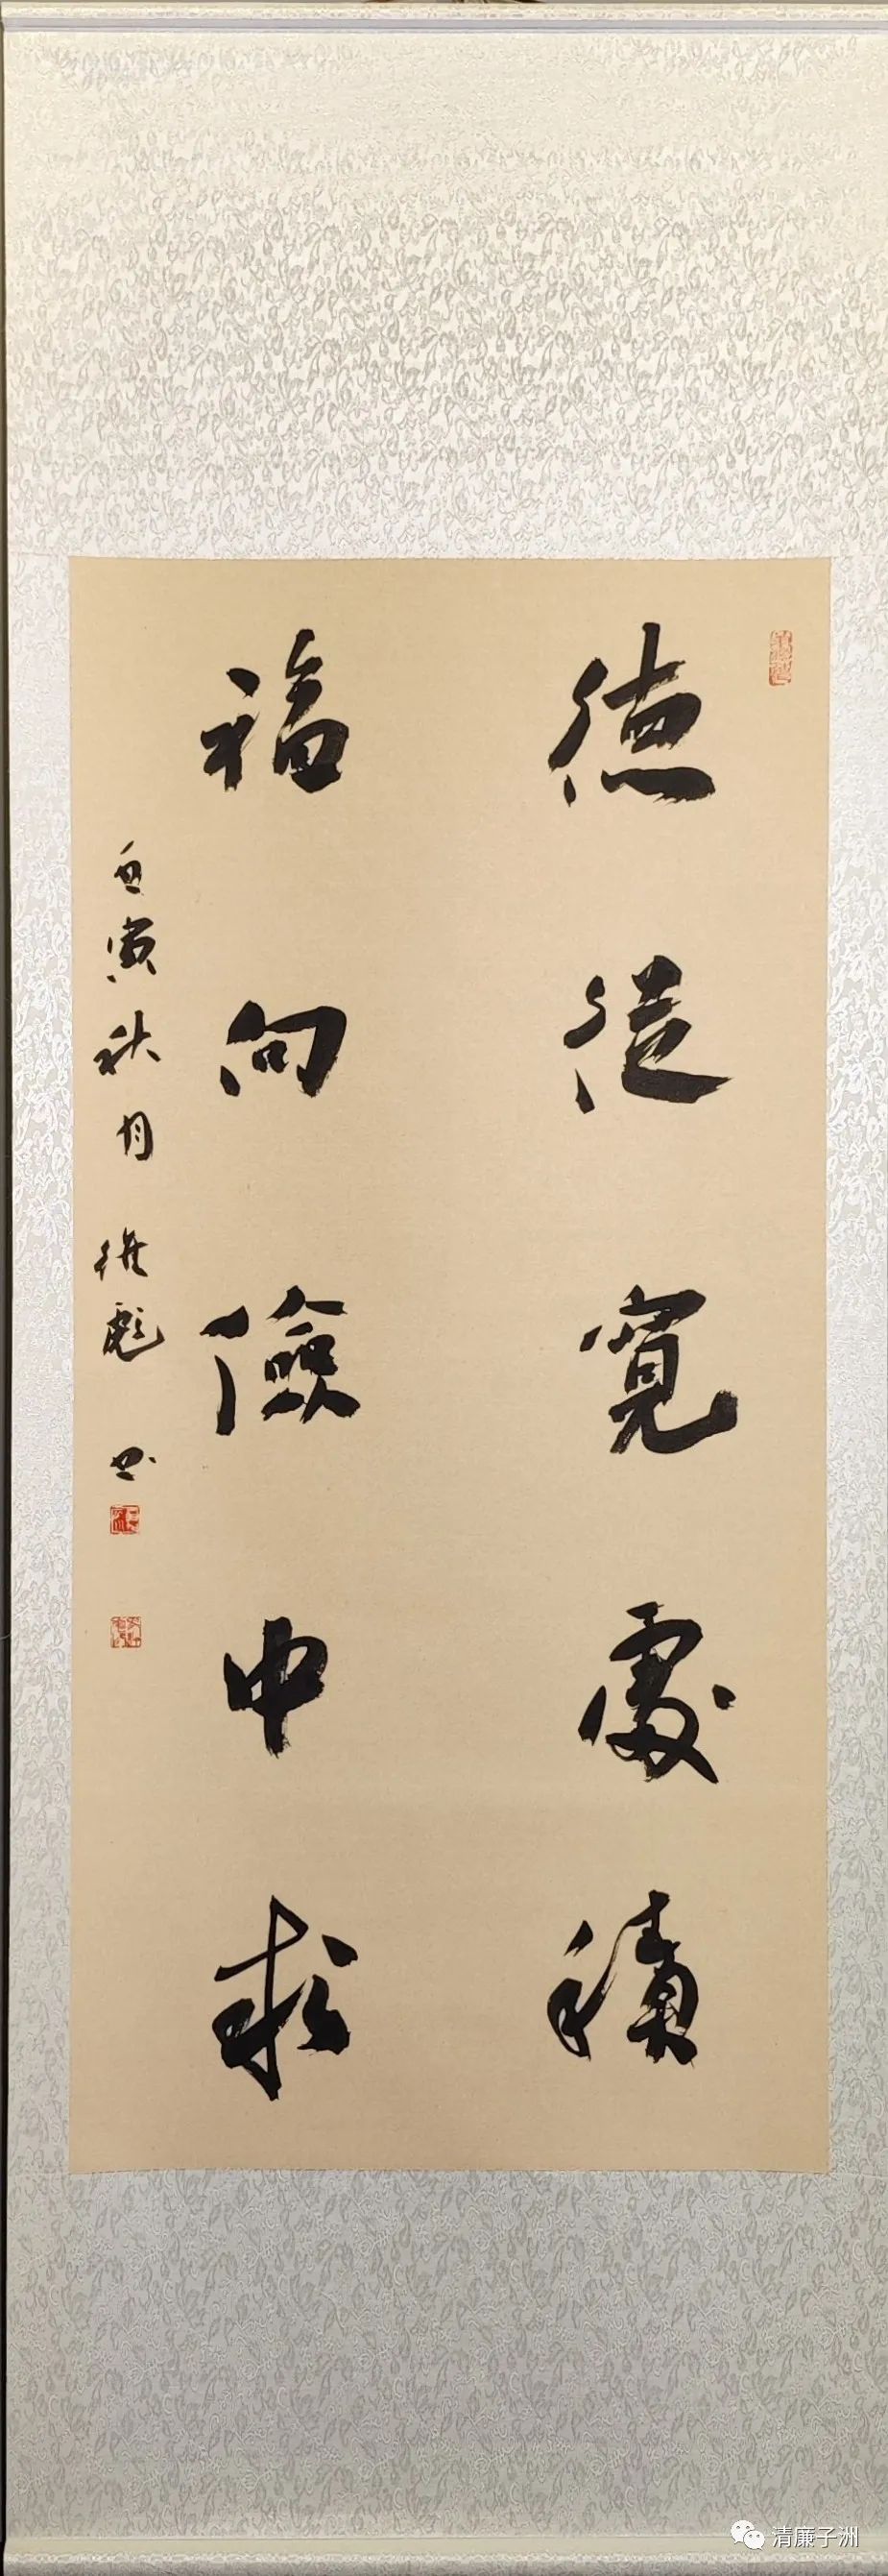 德從寬處積
福向儉中求
壬寅秋月 維彪 书
清廉子洲